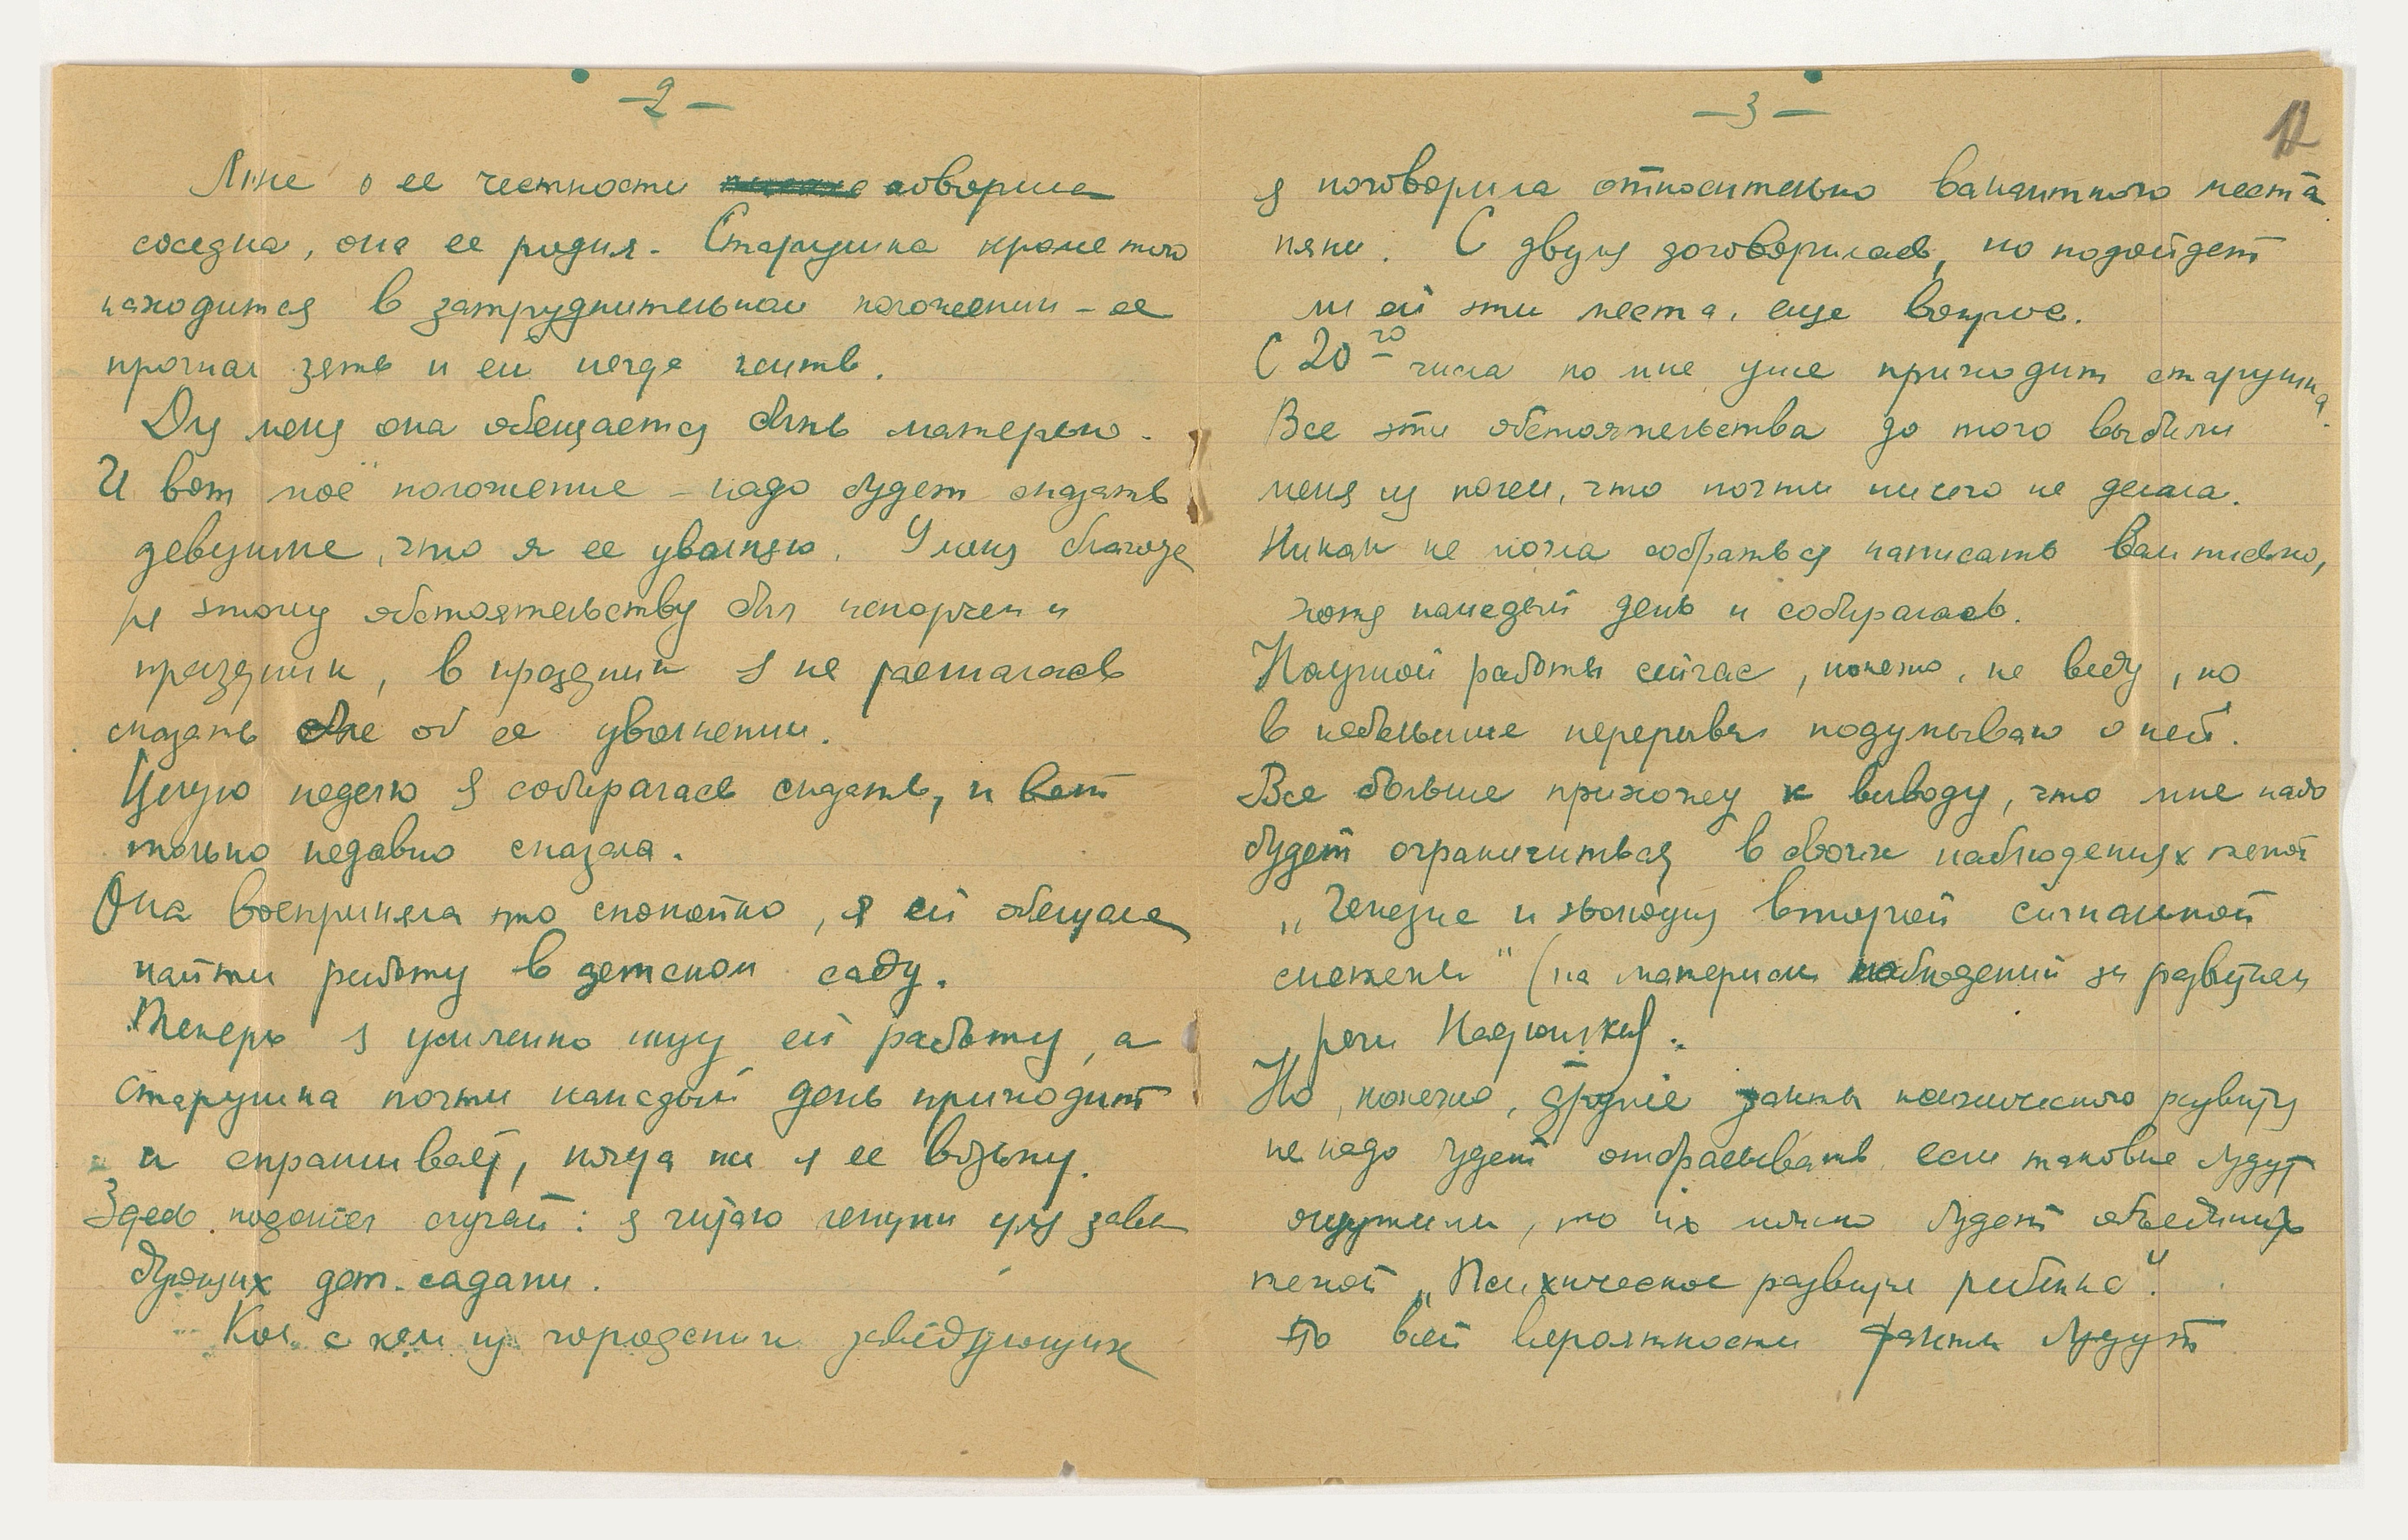 -2-
Мне о ее честности говорила
соседка, она ее родня. Старушка кроме того
находится в затруднительном положении - ее
прогнал зять и ей негде жить.
Для меня она обещается быть матерью.
И вот моё положение - надо будет сказать
девушке, что я ее увольняю. У меня благода
ря этому обстоятельству был испорчен и
праздник, в праздник я не решалась
сказать об ее увольнении.
Целую неделю я собиралась сказать, и вот
только недавно сказала.
Она восприняла это спокойно, я ей обещала
найти работу в детском саду.
Теперь я усиленно ищу ей работу, а
старушка почти каждый день приходит
и спрашивает, когда же я ее возьму.
Здесь подошел случай: я читаю лекции для заве
дующих дет. садами.
Кое с кем из городских заведующих
-3-
12
я поговорила относительно вакантного места
няни. С двумя договорилась, но подойдет
ли ей эти места, еще вопрос.
С 20го числа ко мне уже приходит старушка.
Все эти обстоятельства до того выбили
меня из колеи, что почти ничего не делала.
Никак не могла собраться написать Вам письмо,
хотя каждый день и собиралась.
Научной работы сейчас, конечно, не веду, но
в небольшие перерывы подумываю о ней.
Все больше прихожу к выводу, что мне надо
будет ограничиться в своих наблюдениях темой
"Генезис и эволюция второй сигнальной
системы" (на материале наблюдений за развитием
речи Надюшки).
Но, конечно, другие факты психического развития
не надо будет отбрасывать, если таковые будут
, то их можно будет объединить
темой "Психическое развитие ребенка".
По всей вероятности факты будут